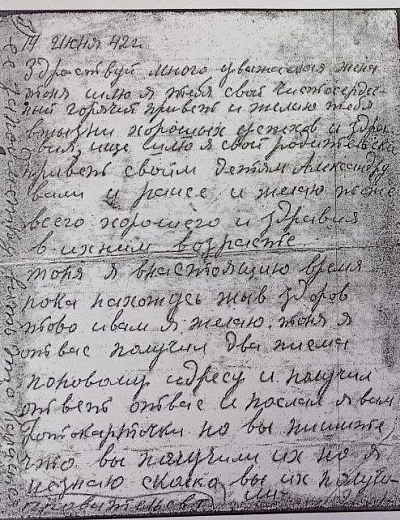 19 июня 42 г
Здраствуй много уважаемая жена
тоня шлю я тебе свой чистосерде-
чный горячий привет и желаю тебя
вжызни хороших успехов и здоро
вия, ище шлю я свой родительски
привет своим детям Александру
вали и раисе и желаю тоже
всего хорошего и здравия
в ихним возрасте.
тоня я внастоящию время
пока нахожусь жыв здоров
тово и вам я желаю. тоня я
отвас получил два писма
поновому адресу и получил
ответ отвас и послал я вам
фотокарточки но вы пишите,
что вы получили их но я
незнаю сколко вы их получи-
ли